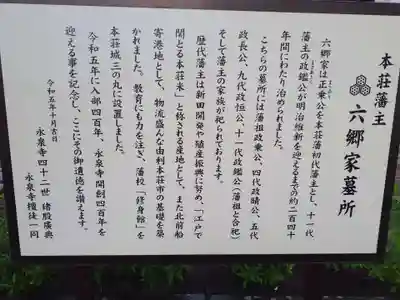 本荘藩主
六郷家墓所
六郷家は正乗公を本荘藩初代藩主とし、十一代
藩主の政鑑公が明治維新を迎えるまでの約二百四十
年間にわたり治められました。
こちらの墓所には藩祖政乗公、四代政晴公、五代
政長公、九代政恒公、十一代政鑑公(藩祖と合祀)
そして藩主の家族が祀られております。
歴代藩主は新田開発や殖産振興に努め、「江戸で
聞とる本荘米」と称される産地として、また北前船
寄港地として、物流盛んな由利本荘市の基礎を築
かれました。教育にも力を注ぎ、藩校「修身館」を
本荘城三の丸に設置しました。
令和五年に入部四百年、永泉寺開創四百年を
迎える事を記念し、ここにその御遺徳を讃えます。
令和五年十月吉日
永泉寺四十二世 禅殷廣典
永泉寺檀徒一同